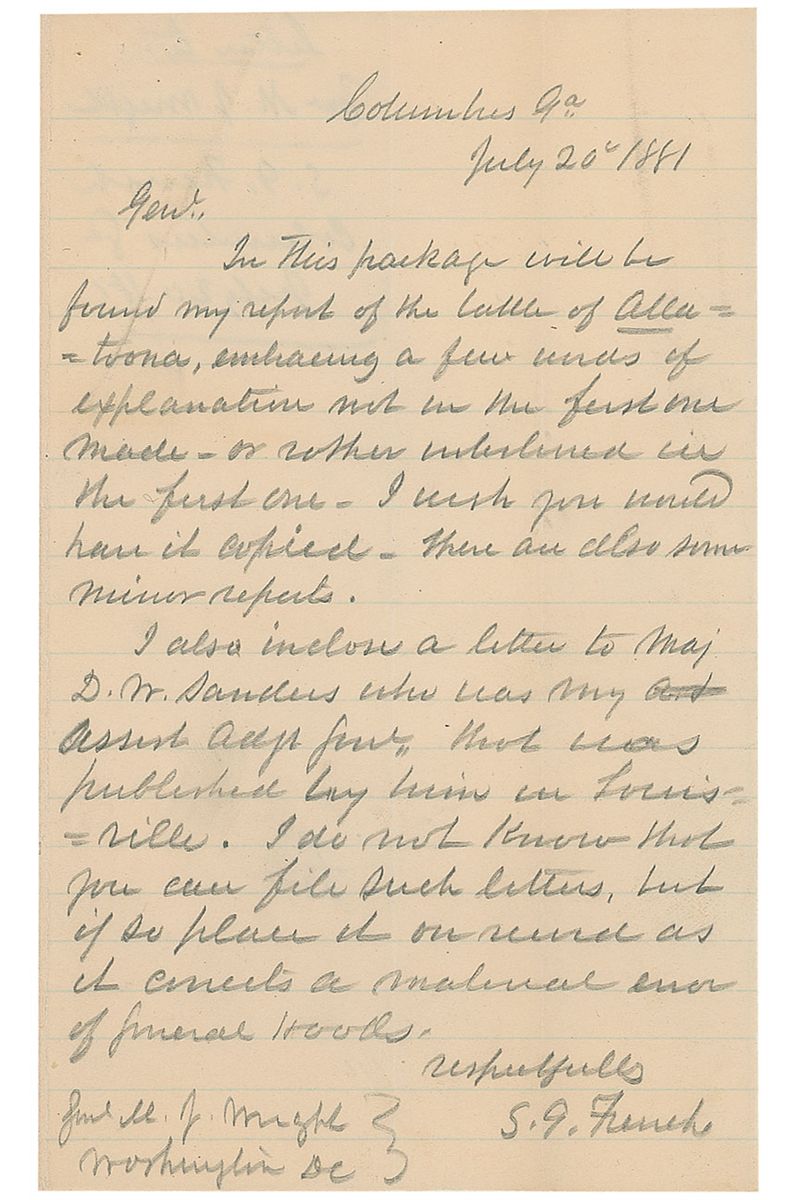 Columbus Ga
July 20' 1881
Genl.,
In this package will be
found my report of the battle of Alla=
=toona, embracing a few words of
explanation not in the first one
made - or rather interlined in
the first one - I wish you would
have it copied - There are also some
minor reports.
I also inclose a letter to Maj
D. W. Sanders who was my
Assist Adjt Genl,, that was
published by him in Louis=
=ville. I do not know that
you can file such letters, but
if so place it on record as
it corrects a material error
of General Hoods.
respectfully
S. G. French
Genl M. J. Wright
Washington DC